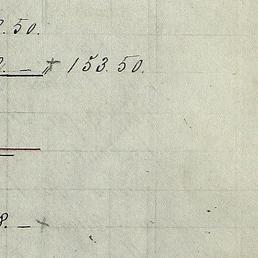 .50.
. — " 153.50.
8. —